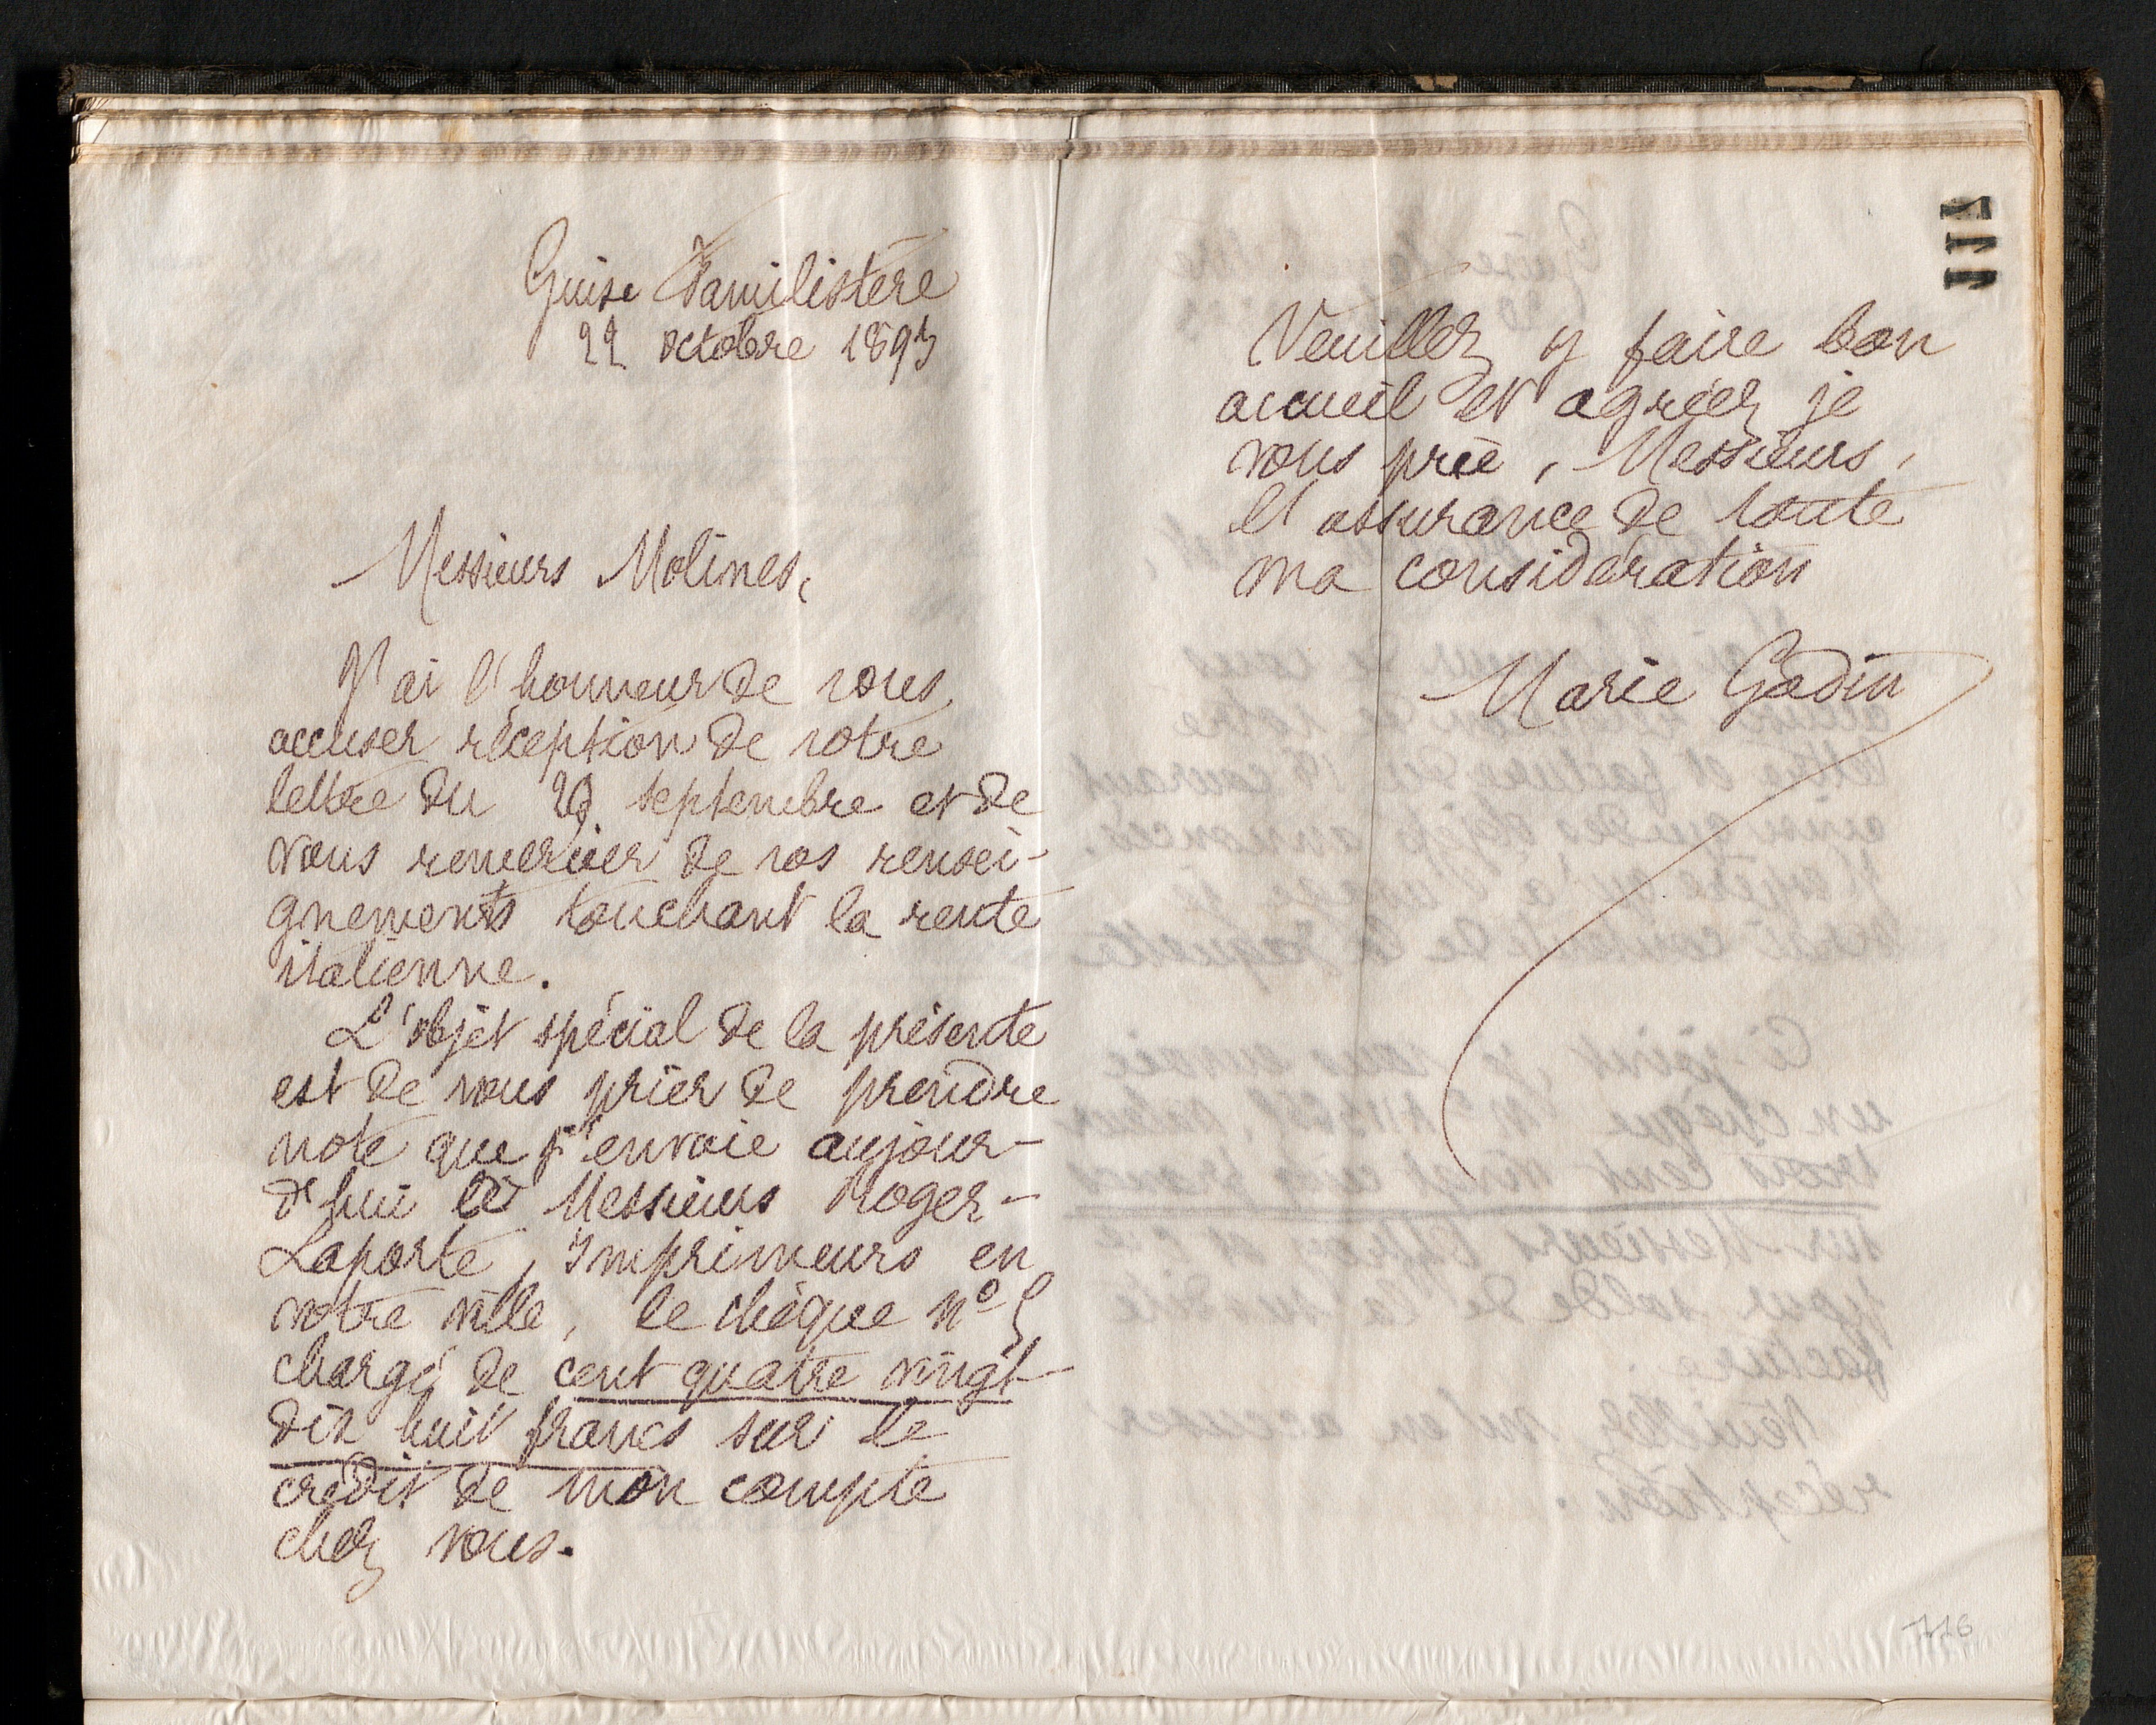 Guise Familistère
22 octobre 1893
Messieurs Molines,
J'ai l'honneur de vous
accuser réception de votre
lettre du 29 septembre et de
vous remercier de vos rensei-
gnements touchant la rente
italienne.
L'objet spécial de la présente
est de vous prier de prendre
note que j'envoie aujour-
d'hui à Messieurs Roger-
Laporte, Imprimeurs en
votre ville, le chèque n° 5
chargé de cent quatre vingt-
dix huit francs sur le
crédit de mon compte
chez vous.
111
Veuillez y faire bon
accueil et agréer, je
vous prie, Messieurs,
l'assurance de toute
ma considération
Marie Godin
116